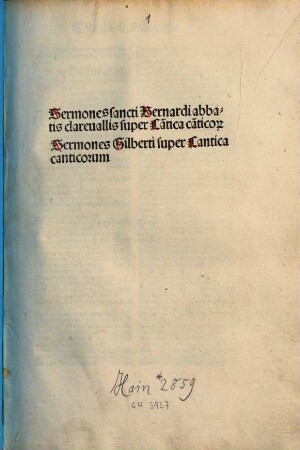 1
Sermones sancti Bernardi abba-
tis clareuallis super Cātica cāticoꝝ
Sermones Gilberti super Cantica
canticorum
Hain *2859
GW 3937